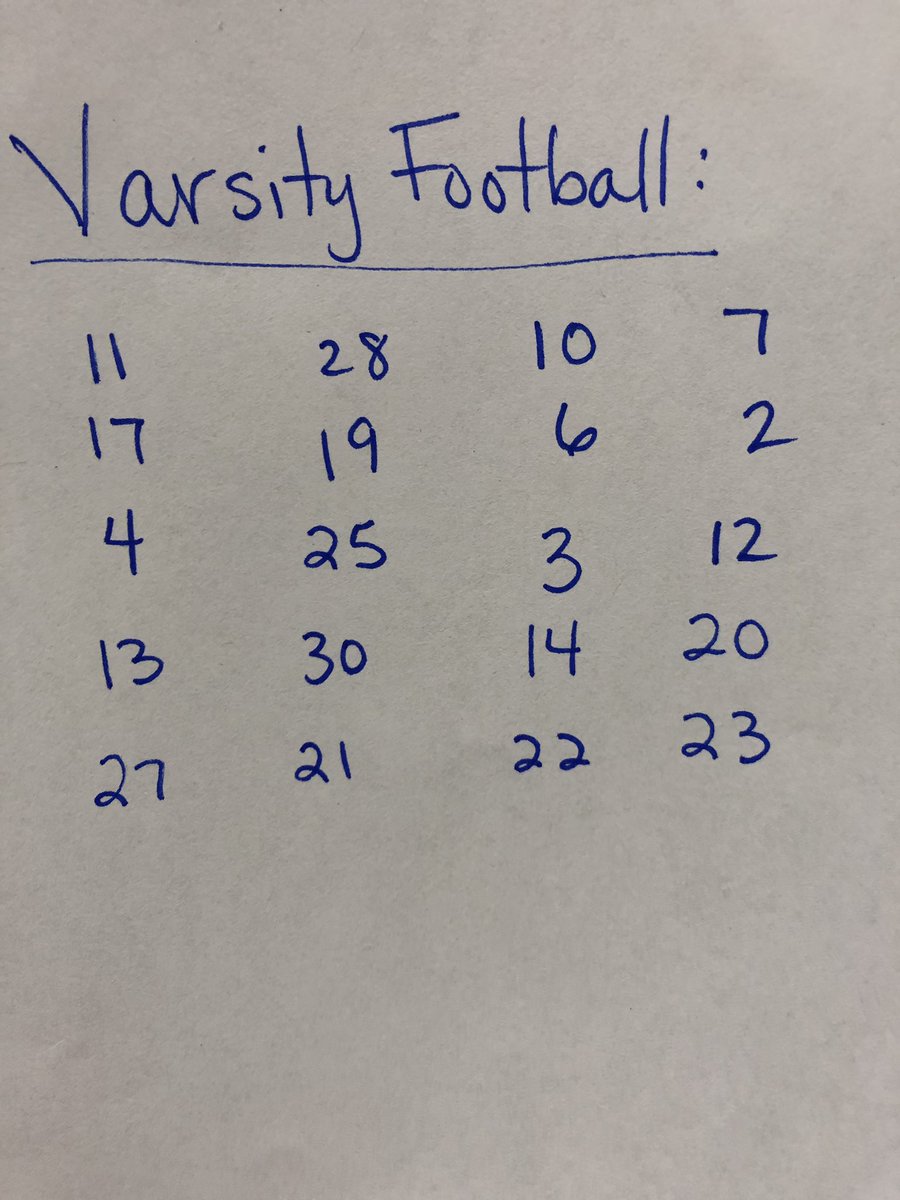 Varsity Football:
11 28 10 7
17 19 6 2
4 25 3 12
13 30 14 20
27 21 22 23